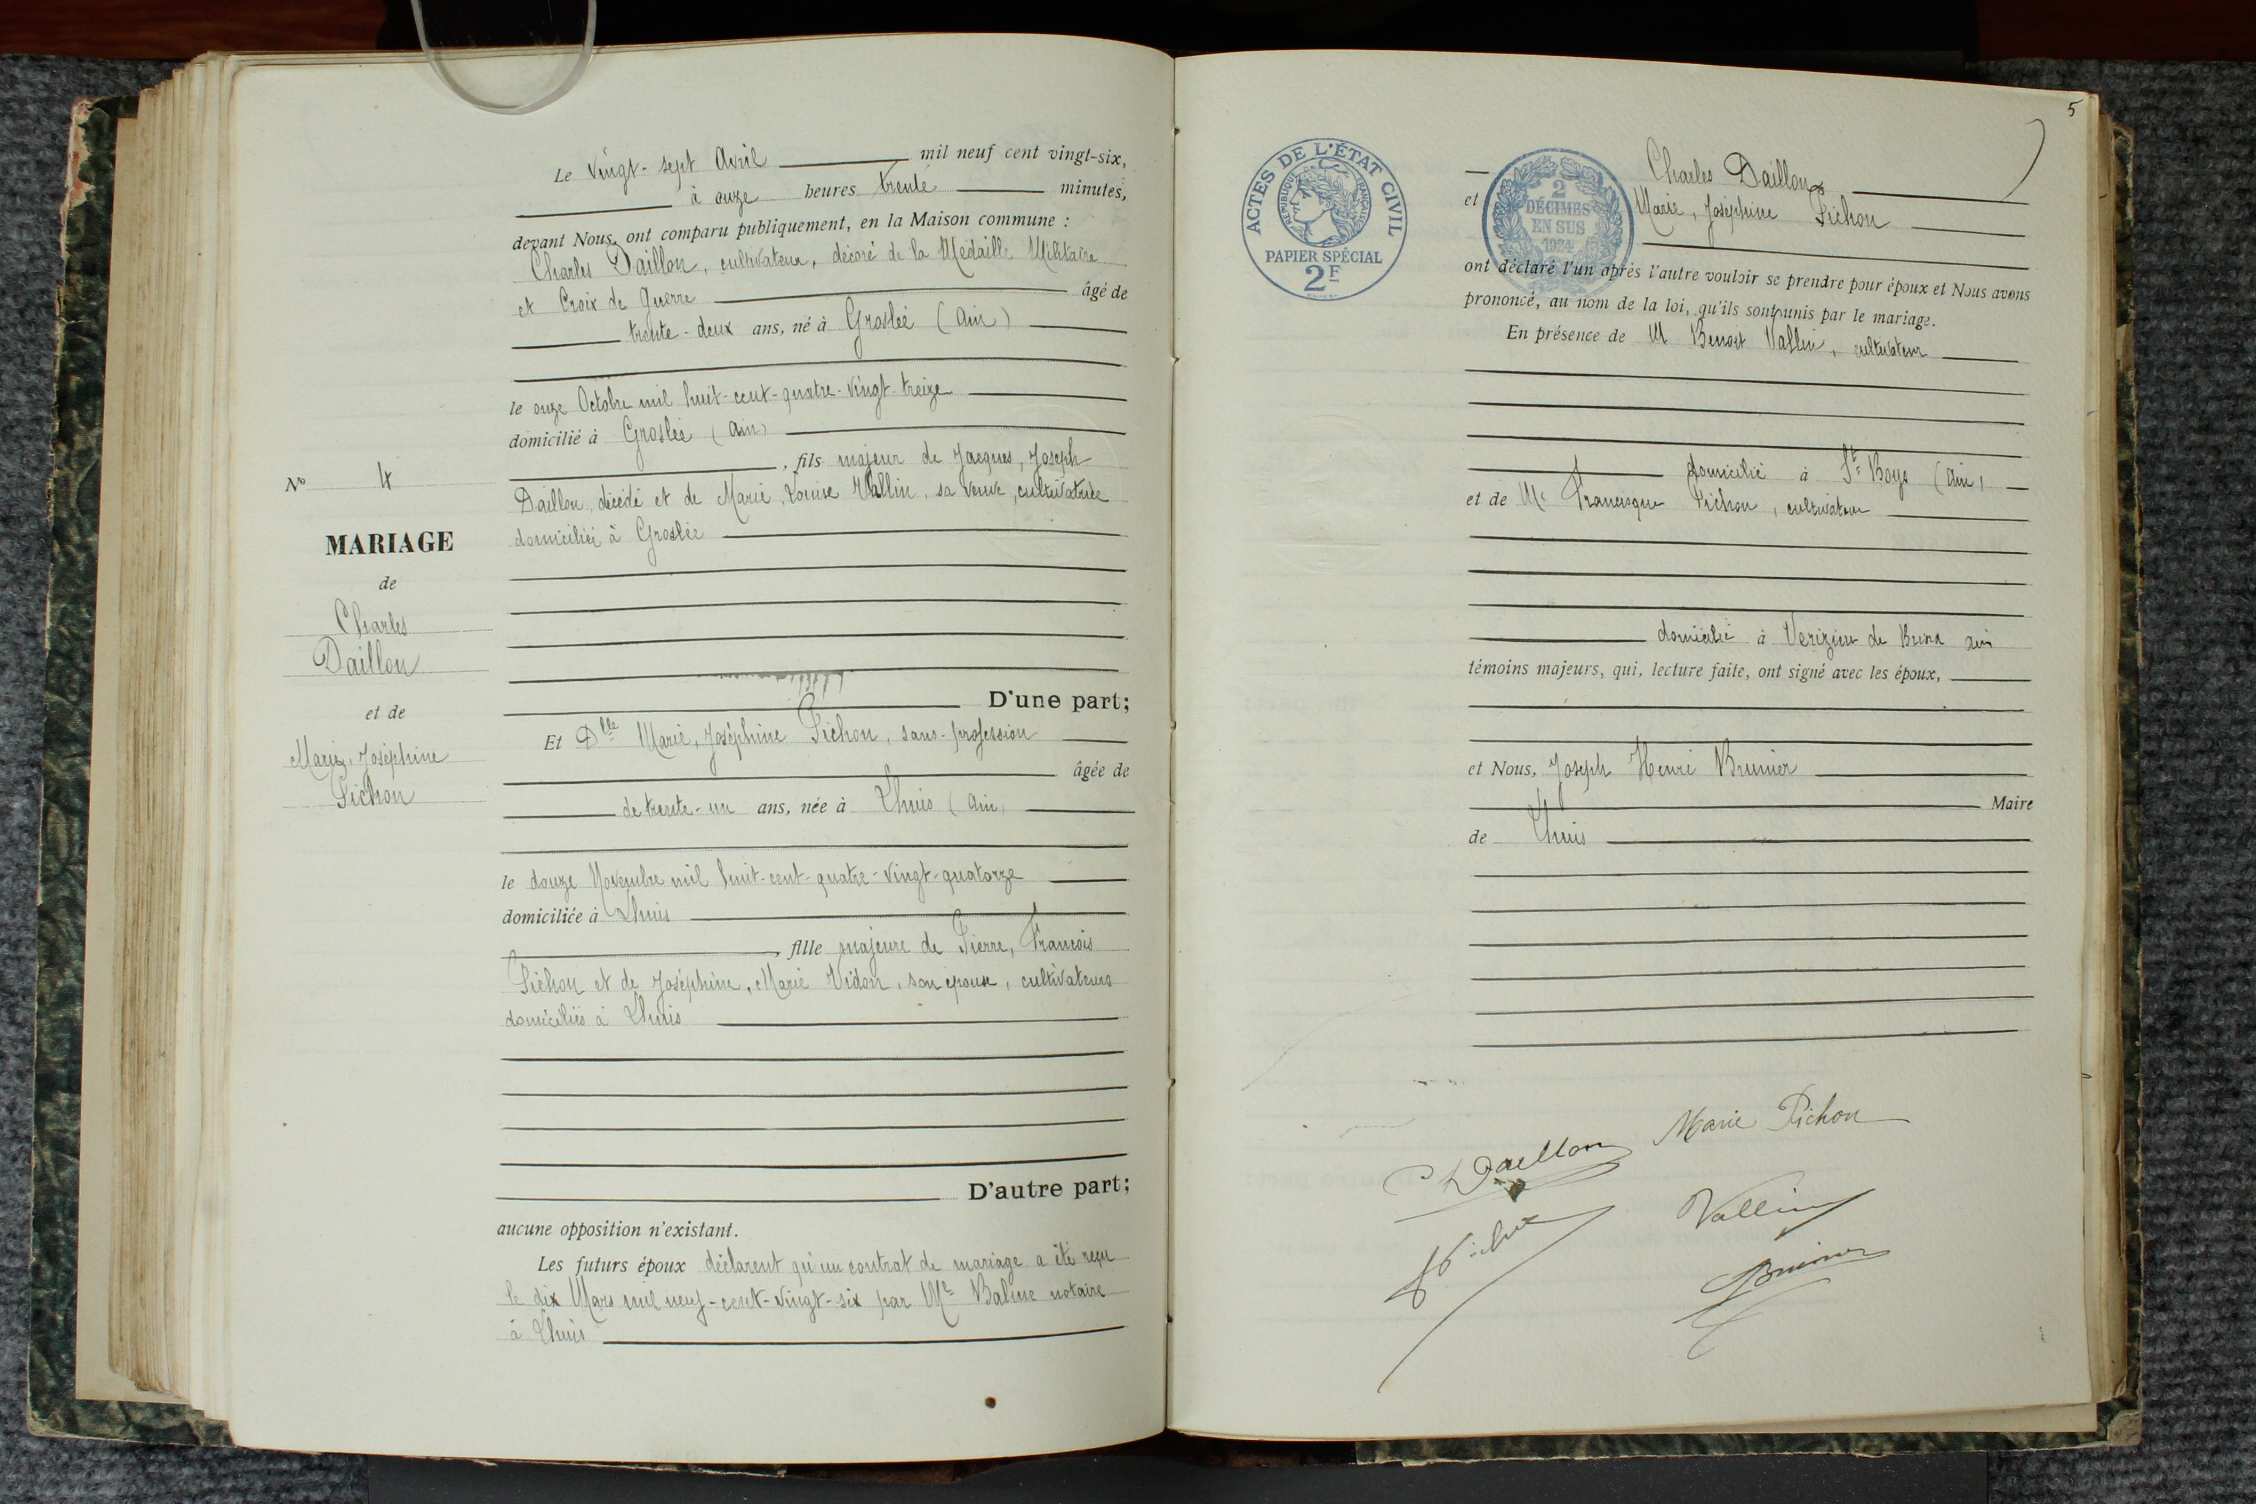 Le vingt-sept Avril mil neuf cent vingt-six,
à onze heures trente minutes,
devant Nous, ont comparu publiquement, en la Maison commune :
Charles Daillon, cultivateur, décoré de la Médaille Militaire
et Croix de Guerre âgé de
trente-deux ans, né à Groslée (Ain)
le onze Octobre mil huit-cent-quatre-vingt-treize
domicilié à Groslée (Ain)
, fils majeur de Jacques, Joseph
Daillon, décédé et de Marie, Louise Vallin, sa veuve, cultivatrice
domiciliée à Groslée
D'une part;
Et Dlle Marie, Joséphine Pichon, sans-profession
âgée de
de trente-un ans, née à Lhuis (Ain)
le douze Novembre mil huit-cent-quatre-vingt-quatorze
domiciliée à Lhuis
, fille majeure de Pierre, François
Pichon et de Joséphine, Marie Vidon, son épouse, cultivateurs
domiciliés à Lhuis
D'autre part;
aucune opposition n'existant.
Les futurs époux déclarent qu'un contrat de mariage a été reçu
le dix Mars mil neuf-cent-vingt-six par Me Balme notaire
à Lhuis
No 4
MARIAGE
de
Charles
Daillon
et de
Marie, Joséphine
Pichon
5
ACTES DE L'ÉTAT CIVIL
RÉPUBLIQUE FRANÇAISE
PAPIER SPÉCIAL
2F
2
DÉCIMES
EN SUS
1924
Charles Daillon
et Marie, Joséphine Pichon
ont déclaré l'un après l'autre vouloir se prendre pour époux et Nous avons
prononcé, au nom de la loi, qu'ils sont unis par le mariage.
En présence de M Benoit Vallin, cultivateur
domicilié à St Boys (Ain)
et de Mr Francisque Pichon, cultivateur
domicilié à Verizieu de Ain
témoins majeurs, qui, lecture faite, ont signé avec les époux,
et Nous, Joseph Henri Brunier
Maire
de Lhuis
C Daillon
Marie Pichon
Pichon
Vallin
Brunier